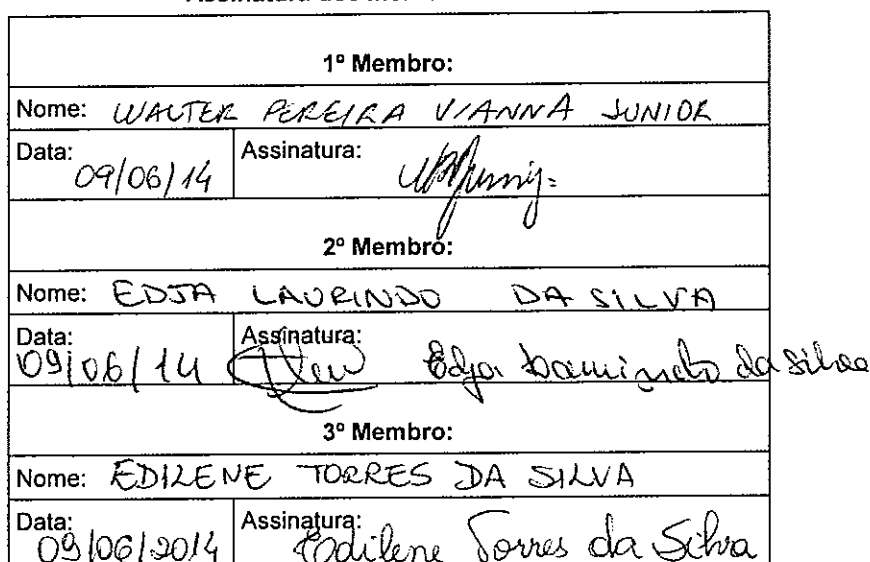 1º Membro:
Nome: WALTER PEREIRA VIANNA JUNIOR
Data: 09/06/14 Assinatura:
2º Membro:
Nome: EDJA LAURINDO DA SILVA
Data: 09/06/14 Assinatura: Edja Laurindo da Silva
3º Membro:
Nome: EDILENE TORRES DA SILVA
Data: 09/06/2014 Assinatura: Edilene Torres da Silva